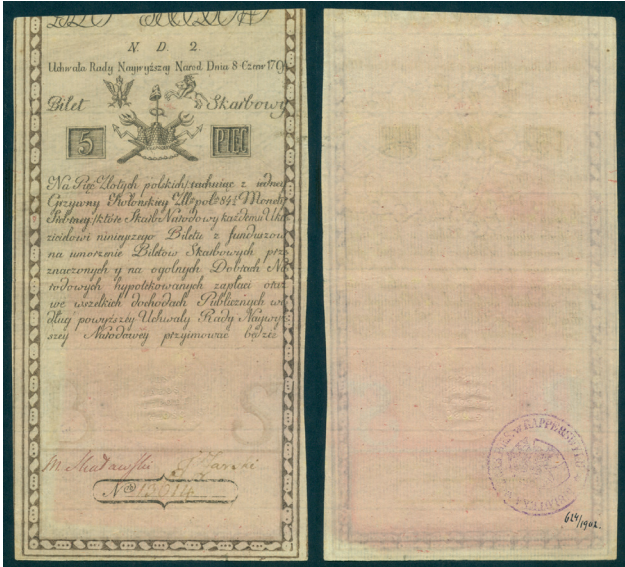 N. D. 2.
Uchwala Rady Naywyższey Narod. Dnia 8 Czerw 179
Bilet Skarbowy
5 PIĘC
Na Pięc Złotych polskich, rachuiąc z iedney
Grzywny Kolońskiey Zł. pol. 84½ Monety
Srebrney, które Skarb Narodowy każdemu Oka
zicielowi ninieyszego Biletu z funduszow
na umorzenie Biletów Skarbowych prze
znaczonych y na ogolnych Dobrach Na
rodowych hypotekowanych zapłaci oraz
we wszelkich dochodach Publicznych we
dług powyższey Uchwały Rady Naywyż
szey Narodowey przyimować będzie
M Skaławski G Zarski
N° 13014
RAPPERSWYL
624/1902